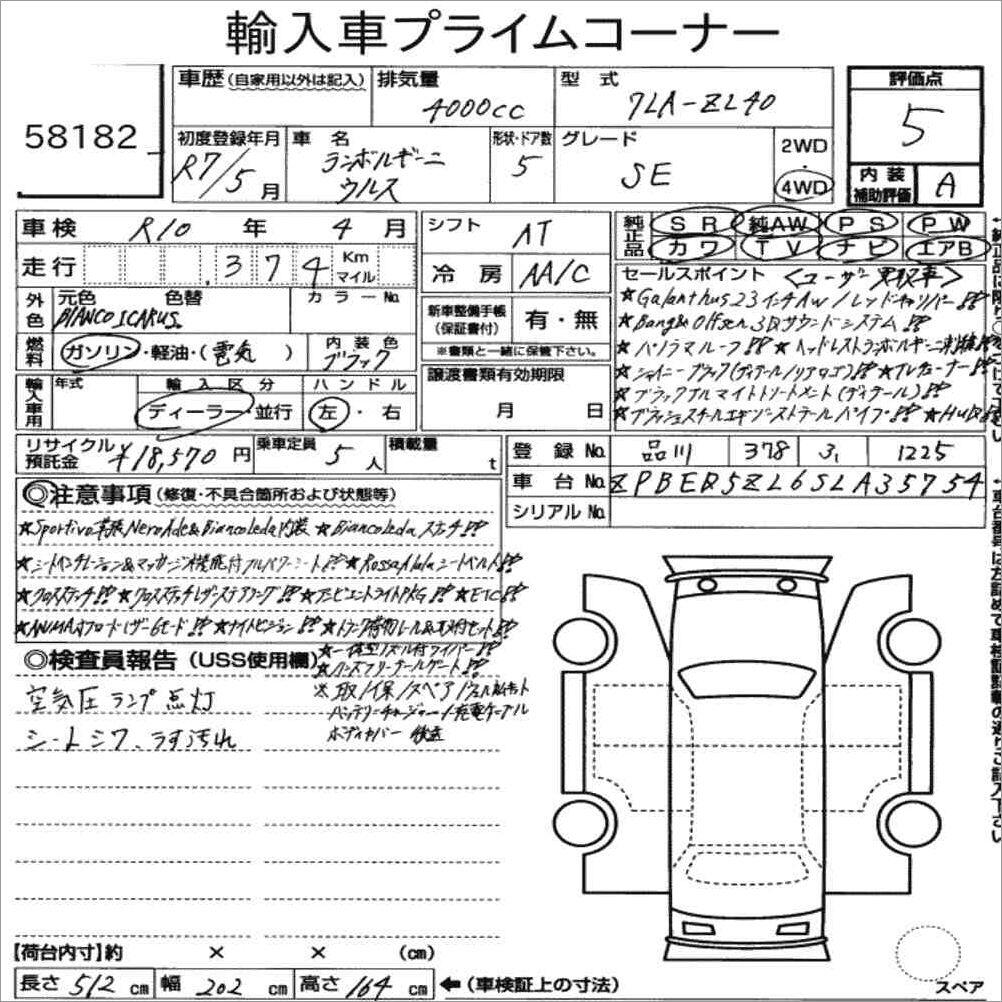 輸入車プライムコーナー
58182
車歴(自家用以外は記入) 排気量 4000cc 型式 7LA-ZL40
評価点 5
初度登録年月 R7/5月 車名 ランボルギーニ ウルス 形状・ドア数 5 グレード SE 2WD 4WD
内装補助評価 A
車検 R10年 4月 シフト AT
純正品 SR 純AW PS PW
カワ TV ナビ エアB
走行 .374 Km マイル 冷房 AA/C
セールスポイント <ユーザー買取車>
外色 元色 色替 カラーNo.
BIANCO ICARUS.
新車整備手帳(保証書付) 有・無
※書類と一緒に保管下さい。
★Galanthus23インチAW/レッドキャリパー!!
★Bang& Olfsen 3Dサウンドシステム!!
燃料 ガソリン・軽油・(電気) 内装色 ブラック
★パノラマルーフ!! ★ヘッドレストランボルギーニ刺繍!!
輸入車用 年式 輸入区分 ハンドル
ディーラー・並行 左・右
譲渡書類有効期限
月 日
★シャイニーブラック(ディテール/リアロゴ)!! ★TVチューナー!!
★ブラッククルマイトトリートメント(ディテール)!!
★ブラッシュスチールエキゾーストテールパイプ!! ★HUD!!
リサイクル預託金 ¥18,570円 乗車定員 5人 積載量 t
登録No. 品川 378 ろ 1225
車台No. ZPBEB5ZL6SLA35754
シリアルNo.
◎注意事項(修復・不具合箇所および状態等)
★Sportivo革張NeroAde&BiancoLeda内装 ★BiancoLedaステッチ!!
★シートベンチレーション&マッサージ機能付フルパワーシート!! ★RossoAlalaシートベルト!!
★クロスステッチ!! ★クロスステッチレザーステアリング!! ★アンビエントライトPKG!! ★ETC!!
★ANIMAオフロードレザー6モード!! ★ナイトビジョン!! ★トランク荷物レール&取付セット!!
★一体型ノズル付ワイパー!!
★ハンズフリーテールゲート!!
※取/保/スペア/ウェルカムキット
バッテリーチャージャー/充電ケーブル
ボディカバー 後送
◎検査員報告(USS使用欄)
空気圧ランプ点灯
シートシワ、うす汚れ
【荷台内寸】約 × × (cm)
長さ 512 cm 幅 202 cm 高さ 164 cm ←(車検証上の寸法)
スペア
車台番号は左詰めで車検証記載の通りご記入下さい